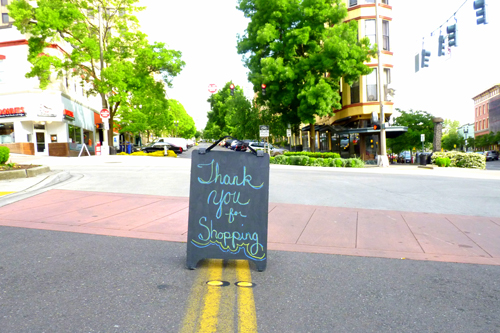 Thank
you
for
Shopping